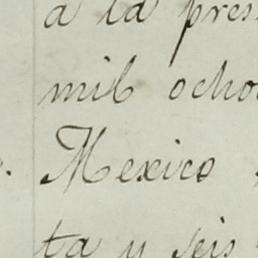 a la pres
mil ocho
Mexico
ta y seis